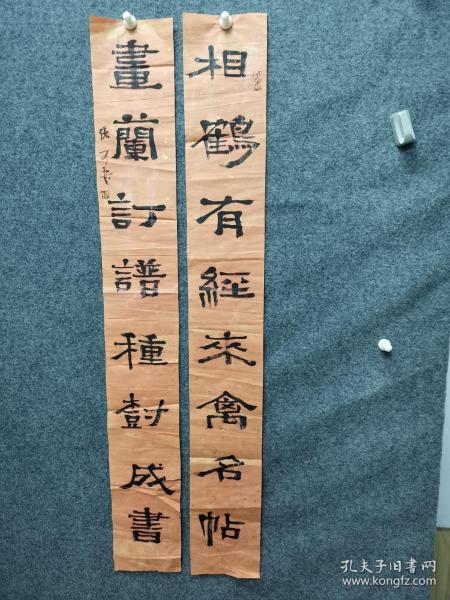 相鶴有經來禽名帖
畫蘭訂譜種樹成書
孔夫子旧书网
www.kongfz.com